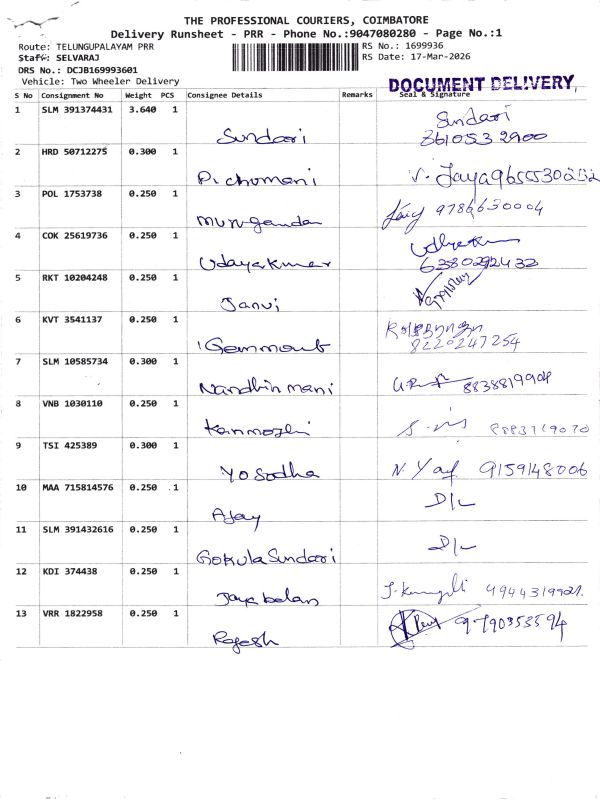 THE PROFESSIONAL COURIERS, COIMBATORE
Delivery Runsheet - PRR - Phone No.:9047080280 - Page No.:1
Route: TELUNGUPALAYAM PRR
RS No.: 1699936
Staff: SELVARAJ
RS Date: 17-Mar-2026
DRS No.: DCJB169993601
Vehicle: Two Wheeler Delivery
DOCUMENT DELIVERY,
S No Consignment No Weight PCS Consignee Details Remarks Seal & Signature
1 SLM 391374431 3.640 1 Sundari Sundari
8610532900
2 HRD 50712275 0.300 1 Pichumani V. Jaya 9655530252
3 POL 1753738 0.250 1 Murugandan 9786630004
4 COK 25619736 0.250 1 Udayakumar
6380292433
5 RKT 10204248 0.250 1 Janvi
6 KVT 3541137 0.250 1
8220247254
7 SLM 10585734 0.300 1 Nandhin mani 8838819904
8 VNB 1030110 0.250 1 Kanmozhi
9 TSI 425389 0.300 1 Yosodha 9159148006
10 MAA 715814576 0.250 1 Ajay D/L
11 SLM 391432616 0.250 1 Gokula Sundari D/L
12 KDI 374438 0.250 1 Jayabalan
13 VRR 1822958 0.250 1 Rajesh 9790353594